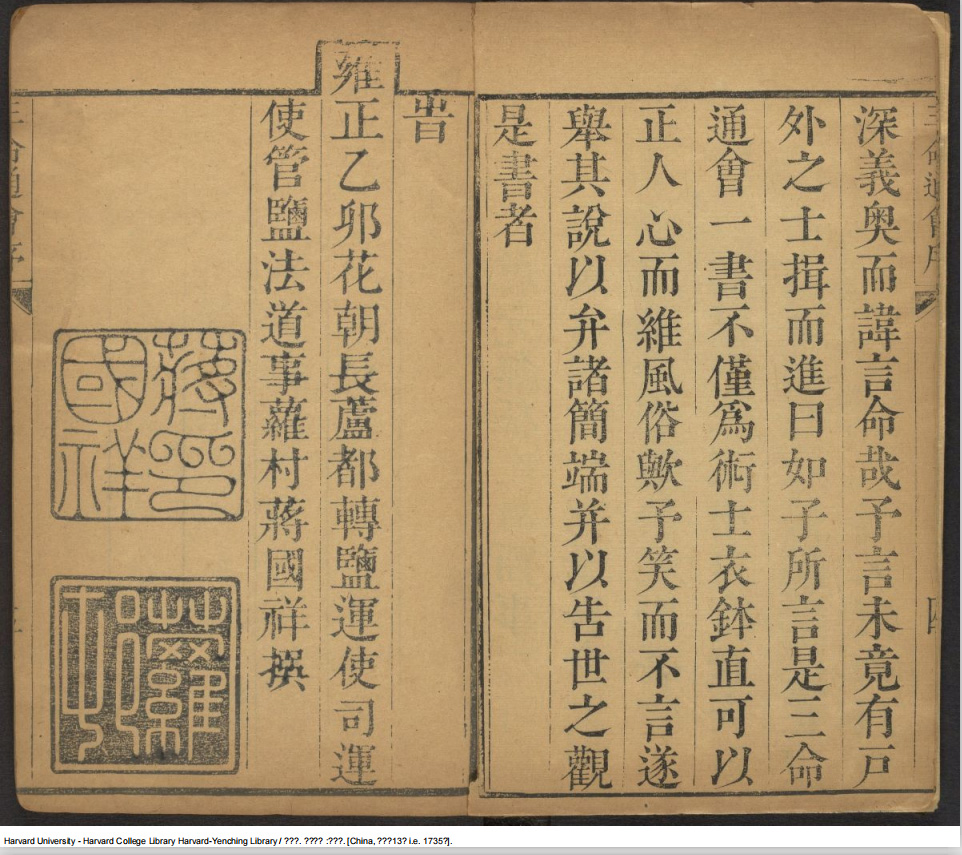 三命通會序
四
深義奧而諱言命哉予言未竟有戸
外之士揖而進曰如子所言是三命
通會一書不僅爲術士衣鉢直可以
正人心而維風俗歟予笑而不言遂
舉其說以弁諸簡端并以告世之觀
是書者
旹
雍正乙卯花朝長蘆都轉鹽運使司運
使管鹽法道事蘿村蔣國祥撰
蔣國祥印
蘿村
三命通會序
Harvard University - Harvard College Library Harvard-Yenching Library / ???. ???? :???. [China, ???13? i.e. 1735?].